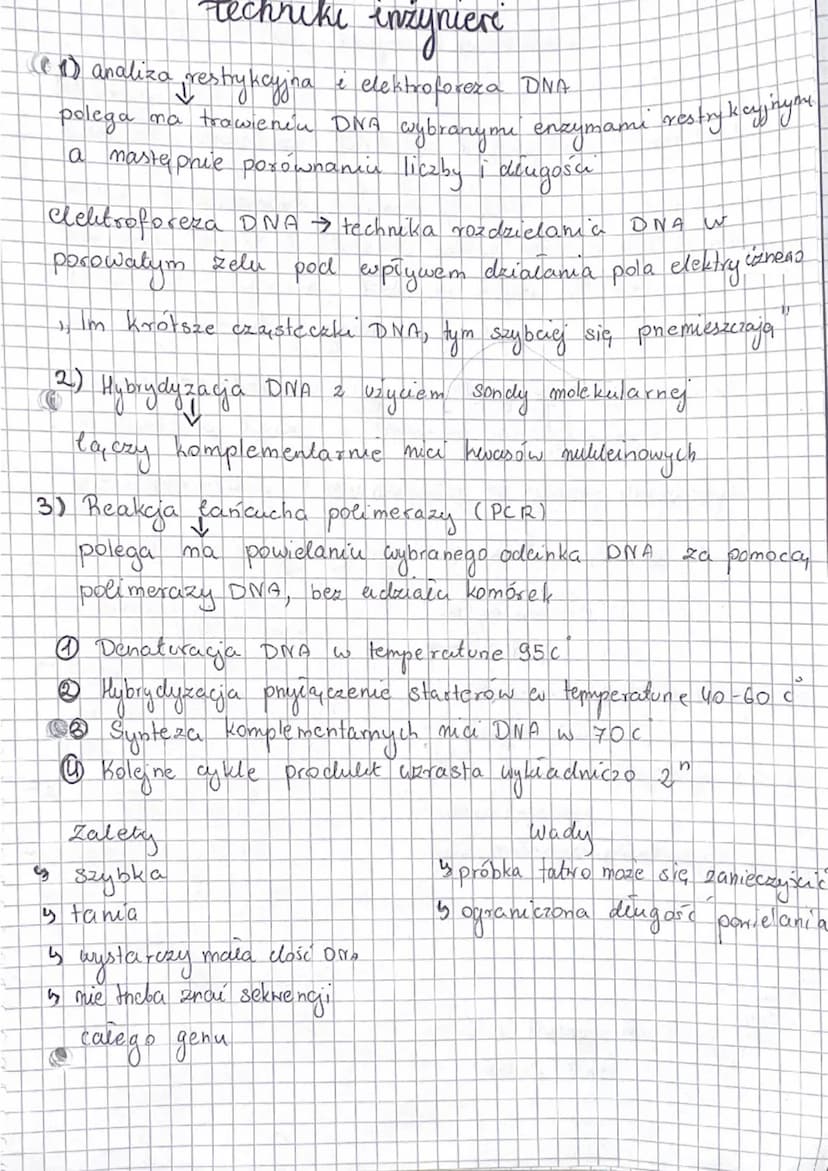 techniki inżynieri
1) analiza restrykcyjna i elektroforeza DNA
↓
polega na trawieniu DNA wybranymi enzymami restrykcyjnymi
a następnie porównaniu liczby i długości
elektroforeza DNA → technika rozdzielania DNA w
porowatym żelu pod wpływem działania pola elektrycznego
„Im krótsze cząsteczki DNA, tym szybciej się przemieszczają"
2) Hybrydyzacja DNA z użyciem sondy molekularnej
↓
łączy komplementarnie nici kwasów nukleinowych
3) Reakcja łańcucha polimerazy (PCR)
↓
polega na powielaniu wybranego odcinka DNA za pomocą
polimerazy DNA, bez udziału komórek
① Denaturacja DNA w temperaturze 95°C
② Hybrydyzacja przyłączenie starterów w temperaturze 40-60°C
③ Synteza komplementarnych nici DNA w 70°C
④ Kolejne cykle produkt wzrasta wykładniczo 2ⁿ
Zalety Wady
↳ szybka ↳ próbka łatwo może się zanieczyścić
↳ tania ↳ ograniczona długość powielania
↳ wystarczy mała ilość DNA
↳ nie trzeba znać sekwencji
całego genu